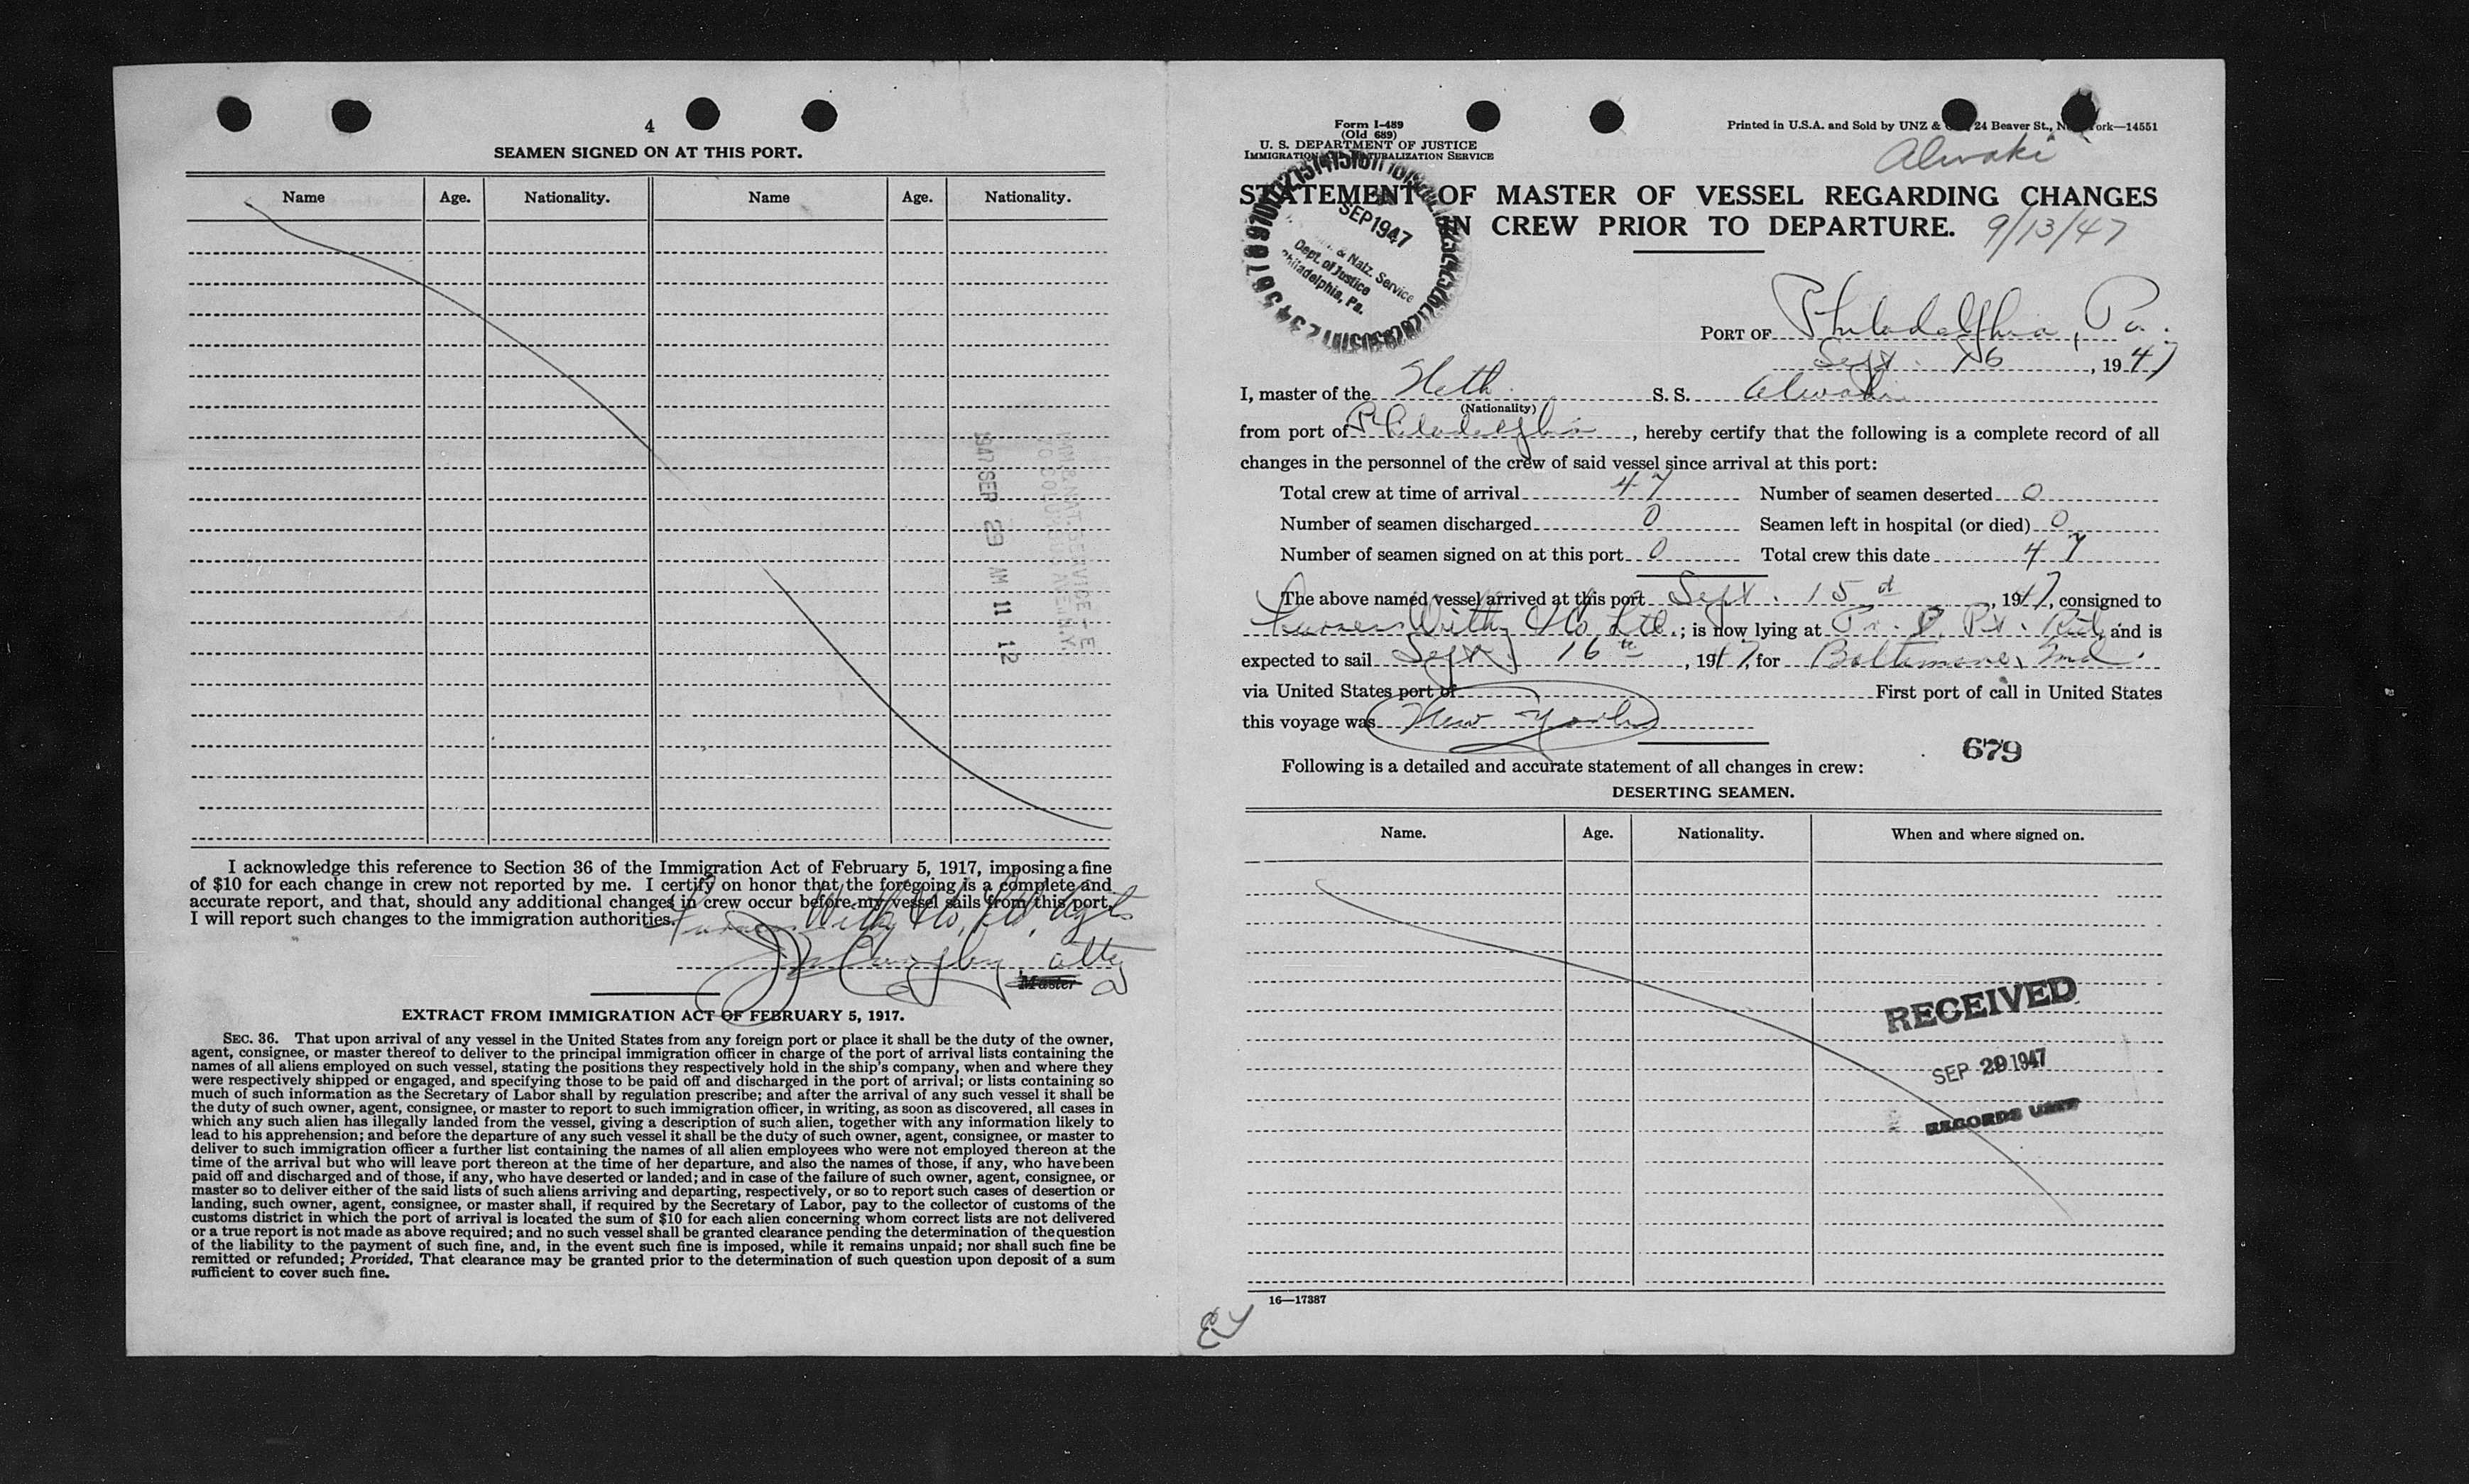 4
SEAMEN SIGNED ON AT THIS PORT.
Name Age. Nationality. Name Age. Nationality.
1947 SEP 29 AM 11 12
I acknowledge this reference to Section 36 of the Immigration Act of February 5, 1917, imposing a fine
of $10 for each change in crew not reported by me. I certify on honor that the foregoing is a complete and
accurate report, and that, should any additional changes in crew occur before my vessel sails from this port,
I will report such changes to the immigration authorities.
Furness Withy & Co. Ltd. Agts
Atty
Master
EXTRACT FROM IMMIGRATION ACT OF FEBRUARY 5, 1917.
SEC. 36. That upon arrival of any vessel in the United States from any foreign port or place it shall be the duty of the owner,
agent, consignee, or master thereof to deliver to the principal immigration officer in charge of the port of arrival lists containing the
names of all aliens employed on such vessel, stating the positions they respectively hold in the ship's company, when and where they
were respectively shipped or engaged, and specifying those to be paid off and discharged in the port of arrival; or lists containing so
much of such information as the Secretary of Labor shall by regulation prescribe; and after the arrival of any such vessel it shall be
the duty of such owner, agent, consignee, or master to report to such immigration officer, in writing, as soon as discovered, all cases in
which any such alien has illegally landed from the vessel, giving a description of such alien, together with any information likely to
lead to his apprehension; and before the departure of any such vessel it shall be the duty of such owner, agent, consignee, or master to
deliver to such immigration officer a further list containing the names of all alien employees who were not employed thereon at the
time of the arrival but who will leave port thereon at the time of her departure, and also the names of those, if any, who have been
paid off and discharged and of those, if any, who have deserted or landed; and in case of the failure of such owner, agent, consignee, or
master so to deliver either of the said lists of such aliens arriving and departing, respectively, or so to report such cases of desertion or
landing, such owner, agent, consignee, or master shall, if required by the Secretary of Labor, pay to the collector of customs of the
customs district in which the port of arrival is located the sum of $10 for each alien concerning whom correct lists are not delivered
or a true report is not made as above required; and no such vessel shall be granted clearance pending the determination of the question
of the liability to the payment of such fine, and, in the event such fine is imposed, while it remains unpaid; nor shall such fine be
remitted or refunded; Provided, That clearance may be granted prior to the determination of such question upon deposit of a sum
sufficient to cover such fine.
Form I-489
(Old 689)
U. S. DEPARTMENT OF JUSTICE
IMMIGRATION NATURALIZATION SERVICE
Printed in U.S.A. and Sold by UNZ & 24 Beaver St., New York—14551
Alwaki
STATEMENT OF MASTER OF VESSEL REGARDING CHANGES
IN CREW PRIOR TO DEPARTURE. 9/13/47
SEP 1947
& Natz. Service
Dept. of Justice
Philadelphia, Pa.
PORT OF Philadelphia, Pa.
Sept. 16, 1947
I, master of the Neth. S. S. Alwaki
(Nationality)
from port of Philadelphia, hereby certify that the following is a complete record of all
changes in the personnel of the crew of said vessel since arrival at this port:
Total crew at time of arrival 47 Number of seamen deserted 0
Number of seamen discharged 0 Seamen left in hospital (or died) 0
Number of seamen signed on at this port 0 Total crew this date 47
The above named vessel arrived at this port Sept. 15, 1947, consigned to
Furness Withy & Co. Ltd.; is now lying at Pt. Rich, and is
expected to sail Sept. 16th, 1947, for Baltimore, Md.
via United States port of First port of call in United States
this voyage was New York
679
Following is a detailed and accurate statement of all changes in crew:
DESERTING SEAMEN.
Name. Age. Nationality. When and where signed on.
RECEIVED
SEP 29 1947
RECORDS UNIT
16—17387